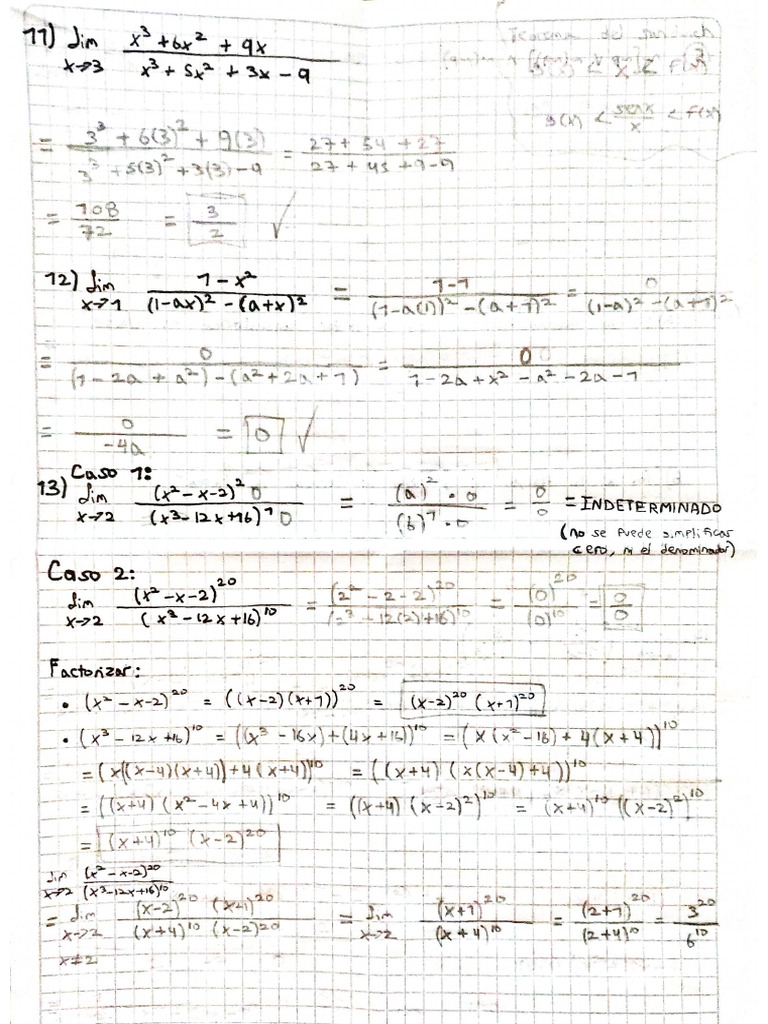 11) lim x→3 (x³ + 6x² + 9x)/(x³ + 5x² + 3x − 9)
= (3³ + 6(3)² + 9(3))/(3³ + 5(3)² + 3(3) − 9) = (27 + 54 + 27)/(27 + 45 + 9 − 9)
= 108/72 = 3/2 ✓
g(x) < senx/x < f(x)
12) lim x→1 (1 − x²)/((1−ax)² − (a+x)²) = (1−1)/((1−a(1))² − (a+1)²) = 0/((1−a)² − (a+1)²)
= 0/((1 − 2a + a²) − (a² + 2a + 1)) = 0/(1 − 2a + x² − a² − 2a − 1)
= 0/(−4a) = 0 ✓
Caso 1:
13) lim x→2 (x² − x − 2)² 0/(x³ − 12x + 16)¹ 0 = (a)² · 0/(b)¹ · 0 = 0/0 = INDETERMINADO
(no se puede simplificar
cero, ni el denominador)
Caso 2:
lim x→2 (x² − x − 2)²⁰/(x³ − 12x + 16)¹⁰ = (2² − 2 − 2)²⁰/(2³ − 12(2) + 16)¹⁰ = (0)²⁰/(0)¹⁰ = 0/0
Factorizar:
• (x² − x − 2)²⁰ = ((x−2)(x+1))²⁰ = (x−2)²⁰ (x+1)²⁰
• (x³ − 12x + 16)¹⁰ = ((x³ − 16x) + (4x + 16))¹⁰ = (x(x² − 16) + 4(x + 4))¹⁰
= (x((x−4)(x+4)) + 4(x+4))¹⁰ = ((x+4)(x(x−4)+4))¹⁰
= ((x+4)(x² − 4x + 4))¹⁰ = ((x+4)(x−2)²)¹⁰ = (x+4)¹⁰ ((x−2)²)¹⁰
= (x+4)¹⁰ (x−2)²⁰
lim x→2 (x² − x − 2)²⁰/(x³ − 12x + 16)¹⁰
= lim x→2 x≠2 (x−2)²⁰ (x+1)²⁰/(x+4)¹⁰ (x−2)²⁰ = lim x→2 (x+1)²⁰/(x+4)¹⁰ = (2+1)²⁰/(2+4)¹⁰ = 3²⁰/6¹⁰